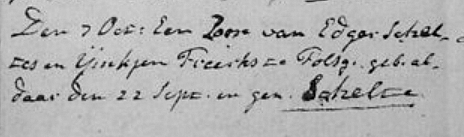 Den 7 Oct: Een Zoon van Edger Schel-
tes en Ijnskjen Freerks te Folsg: geb. al-
daar den 22 Sept. en gen. Schelte